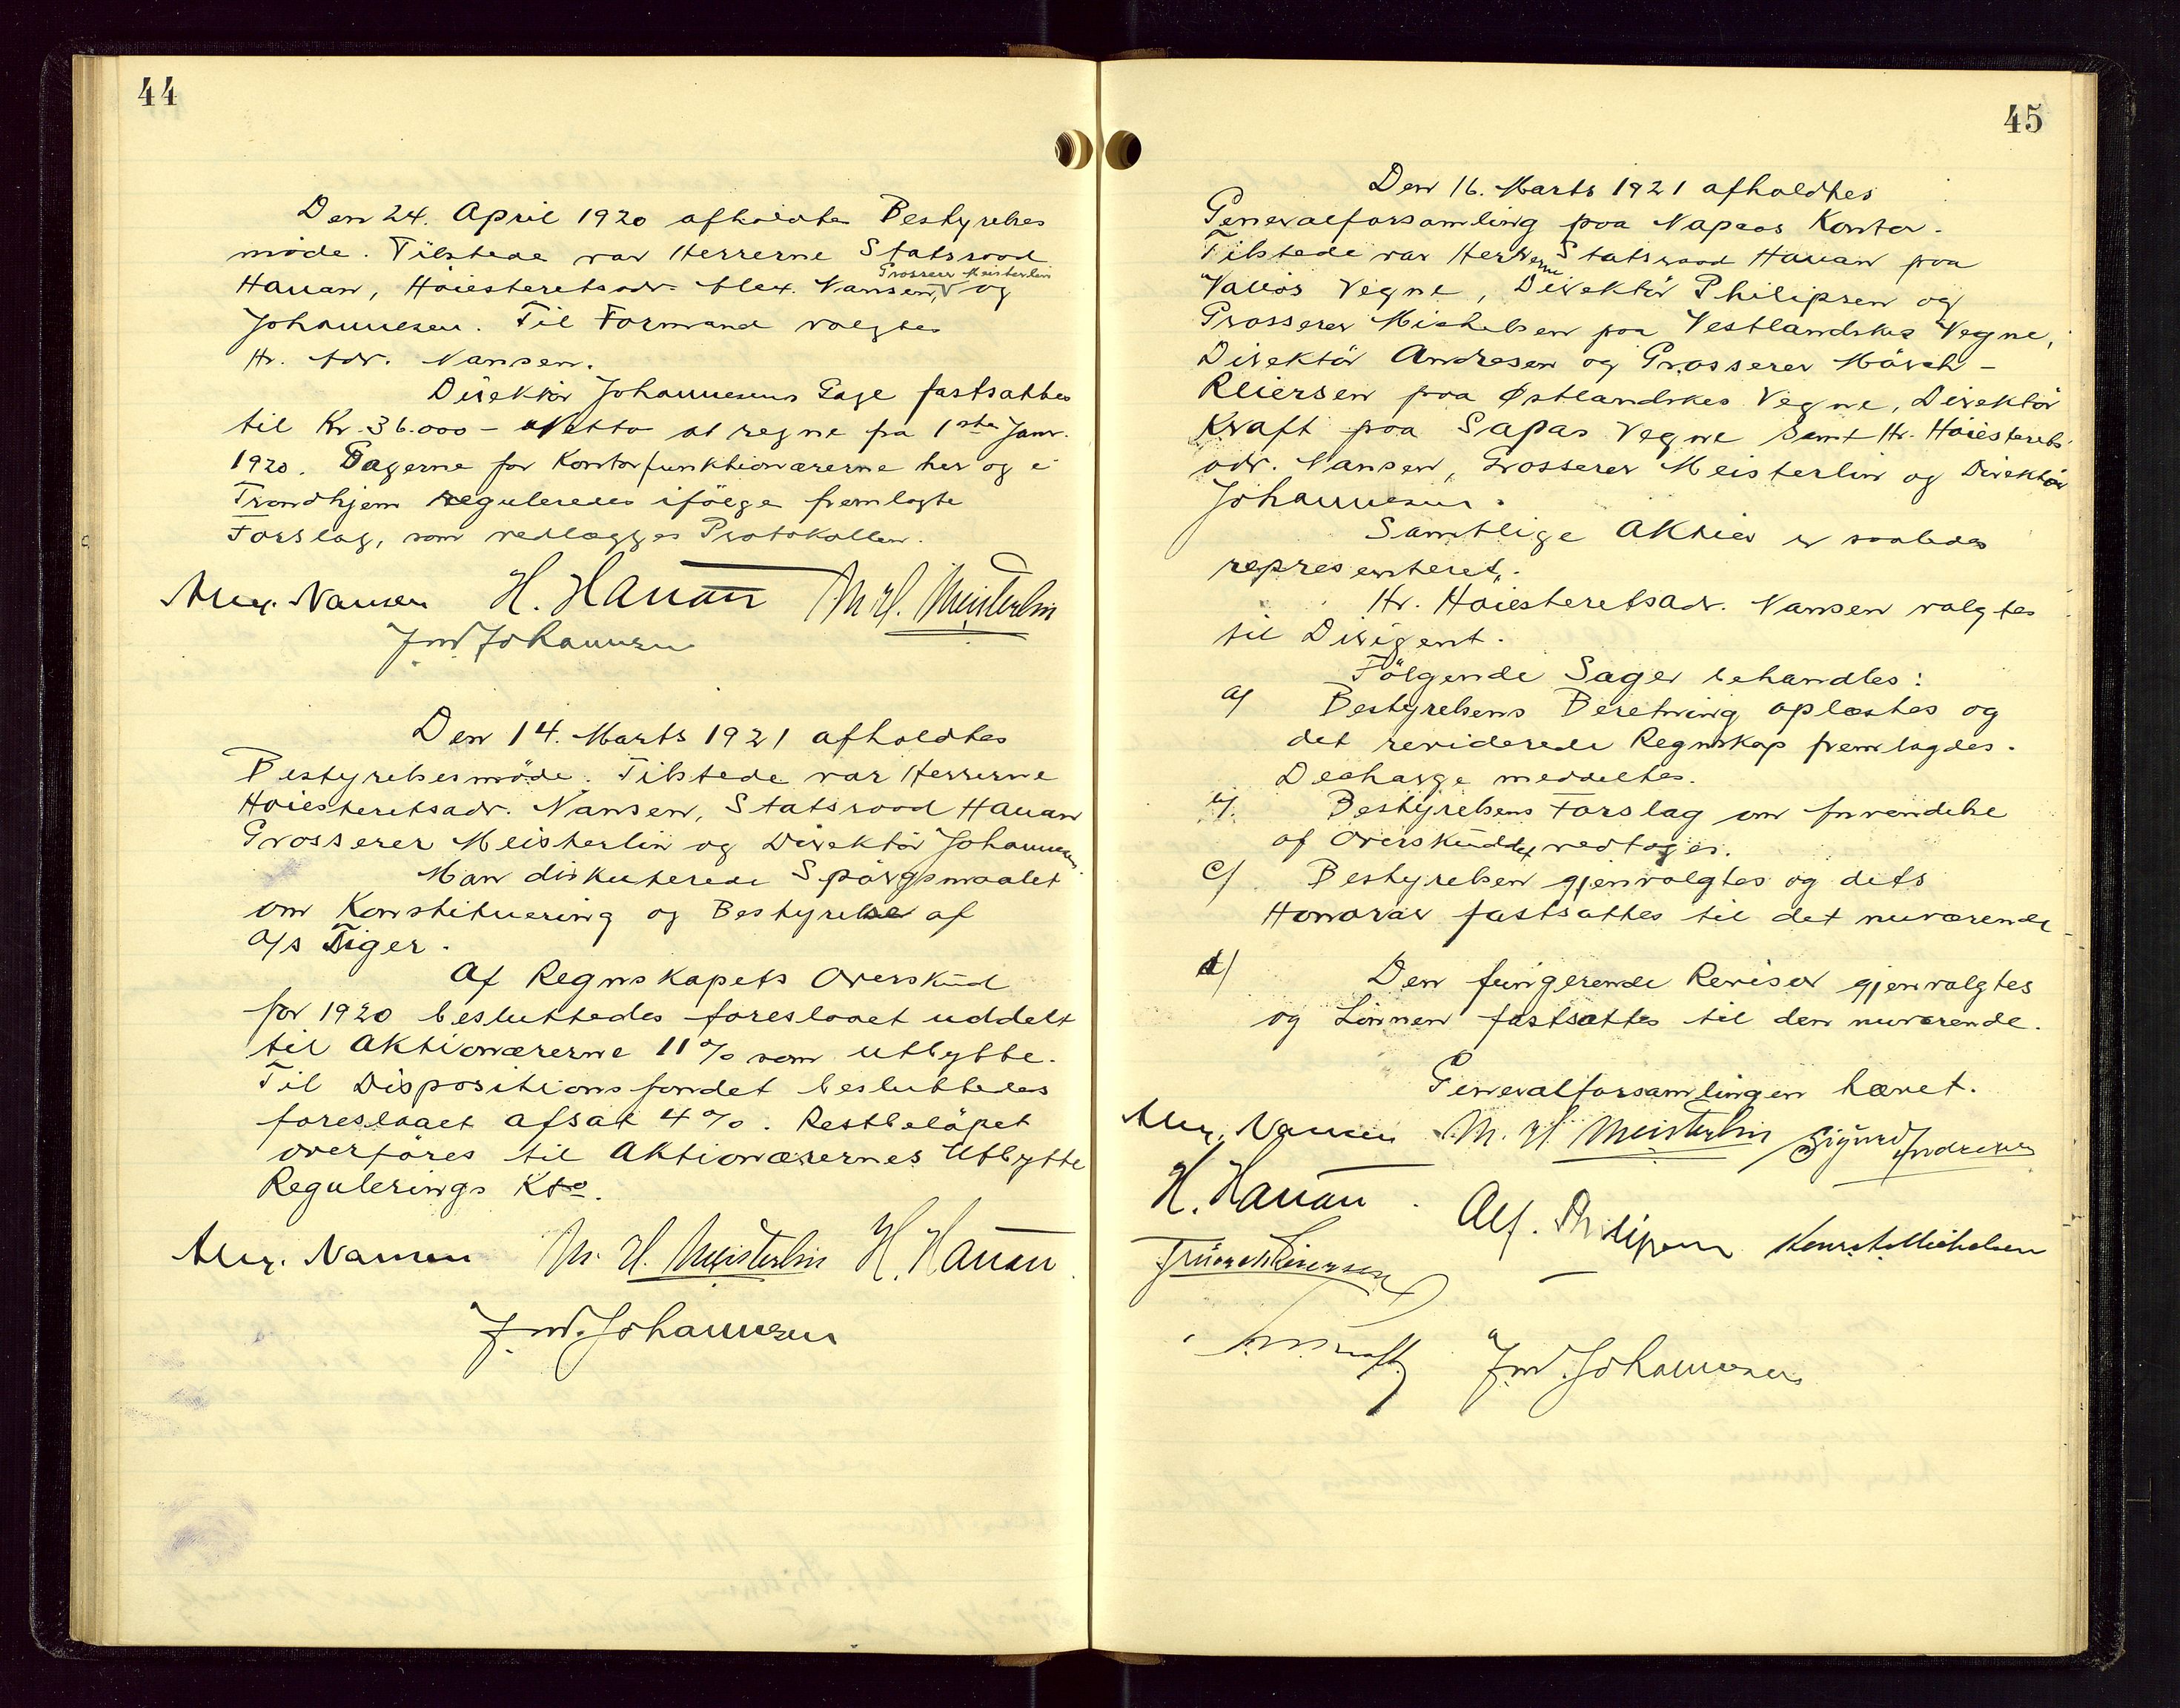 44
Den 24. April 1920 afholdtes Bestyrelses
möde. Tilstede var Herrerne Statsraad
Grosserer Meisterlin
Hauan, Höiesteretsadv. Alex. Nansen, og
Johannesen. Til Formand valgtes
Hr. Adv. Nansen.
Direktör Johannesens Gage fastsattes
til Kr. 36.000 - Netto at regne fra 1ste Janr.
1920. Gagerne for Kontorfunktionærerne her og i
Trondhjem reguleredes ifölge fremlagte
Forslag, som vedlægges Protokollen.
Alex. Nansen H. Hauan M. H. Meisterlin
Johannesen
Den 14. Marts 1921 afholdtes
Bestyrelsesmöde. Tilstede var Herrerne
Höiesteretsadv. Nansen, Statsraad Hauan
Grosserer Meisterlin og Direktör Johannesen.
Man diskuterede Spörgsmaalet
om Konstituering og Bestyrelse af
A/s Tiger.
Af Regnskapets Overskud
for 1920 besluttedes foreslaaet uddelt
til Aktionærerne 11% som Utbytte.
Til Dispositionsfondet besluttedes
foreslaaet afsat 4%. Restbelöpet
overföres til Aktionærernes Utbytte
Regulerings Kto.
Alex. Nansen M. H. Meisterlin H. Hauan
Johannesen
45
Den 16. Marts 1921 afholdtes
Generalforsamling paa Napaas Kontor.
Tilstede var Herrerne Statsraad Hauan paa
Vegne, Direktör Philipsen og
Grosserer Michelsen paa Vestlandskes Vegne,
Direktör Andresen og Grosserer Mörch-
Reiersen paa Østlandskes Vegne, Direktör
Kraft paa Sapas Vegne samt Hr. Höiesterets
adv. Nansen, Grosserer Meisterlin og Direktör
Johannesen.
Samtlige Aktier er saaledes
representeret.
Hr. Höiesteretsadv. Nansen valgtes
til Dirigent.
Fölgende Sager behandles:
a/ Bestyrelsens Beretning oplæstes og
det reviderede Regnskap fremlagdes.
Decharge meddeltes.
b/ Bestyrelsens Forslag om Anvendelse
af Overskuddet vedtoges.
c/ Bestyrelsen gjenvalgtes og dets
Honorar fastsattes til det nuværende.
d/ Den fungerende Revisor gjenvalgtes
og Lönnen fastsattes til den nuværende.
Generalforsamlingen hævet.
Alex. Nansen M. H. Meisterlin Sigurd Andresen
H. Hauan. Alf. Philipsen Michelsen
Kraft Johannesen